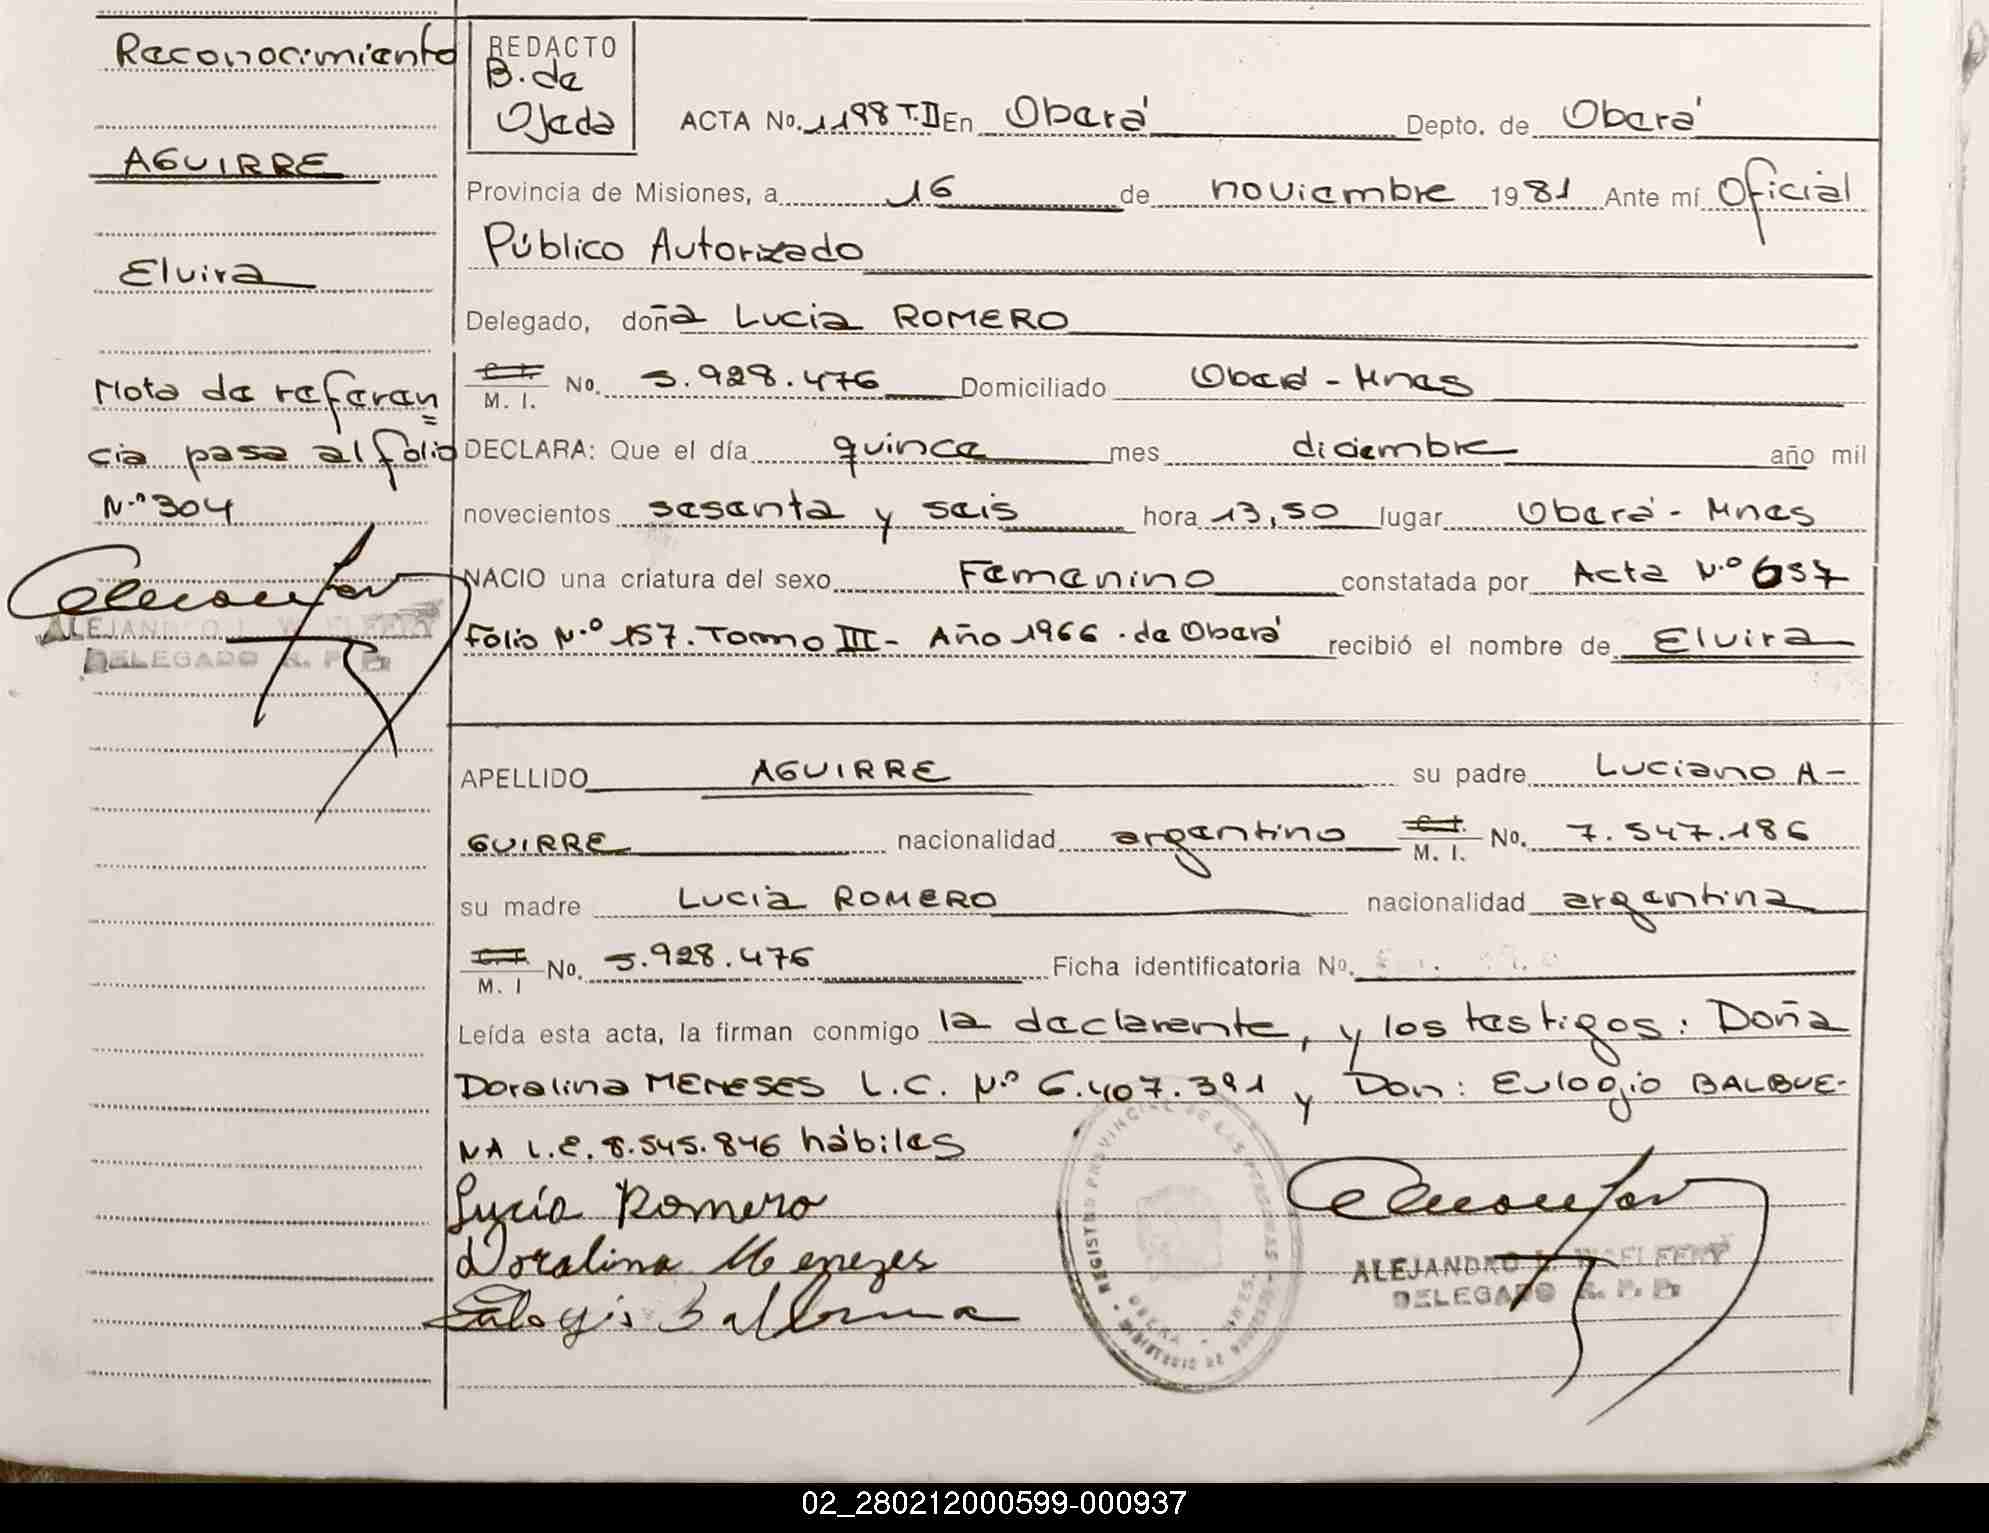 Reconocimiento
AGUIRRE
Elvira
Nota de referen=
cia pasa al folio
N.º 304
ALEJANDRO
DELEGADO R. P. P.
REDACTO
B. de
Ojeda
ACTA No. 1198 T.II En Oberá Depto. de Oberá
Provincia de Misiones, a 16 de noviembre 1981 Ante mí Oficial
Público Autorizado
Delegado, doña Lucia ROMERO
C. I. M. I. No. 5.928.476 Domiciliado Oberá - Mnes
DECLARA: Que el día quince mes diciembre año mil
novecientos sesenta y seis hora 13,50 lugar Oberá - Mnes
NACIO una criatura del sexo Femenino constatada por Acta N.º 657
Folio N.º 157. Tomo III - Año 1966 . de Oberá recibió el nombre de Elvira
APELLIDO AGUIRRE su padre Luciano A-
GUIRRE nacionalidad argentino C. I. M. I. No. 7.547.186
su madre Lucia ROMERO nacionalidad argentina
C. I. M. I No. 5.928.476 Ficha identificatoria No.
Leída esta acta, la firman conmigo la declarante, y los testigos: Doña
Doralina MENESES L.C. N.º 6.407.391 y Don: Eulogio BALBUE-
NA L.E. 8.545.846 hábiles
Lucía Romero
Doralina Menezes
Eulogio Balbuena
REGISTRO PROVINCIAL DE LAS PERSONAS
OBERA - MNES.
ALEJANDRO
DELEGADO R. P. P.
02_280212000599-000937